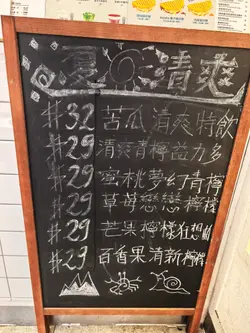 夏 清爽
#32 苦瓜清爽特飲
#29 清爽青檸益力多
#29 蜜桃夢幻青檸
#29 草莓戀戀檸檬
#29 芒果檸檬狂想曲
#29 百香果清新檸檬